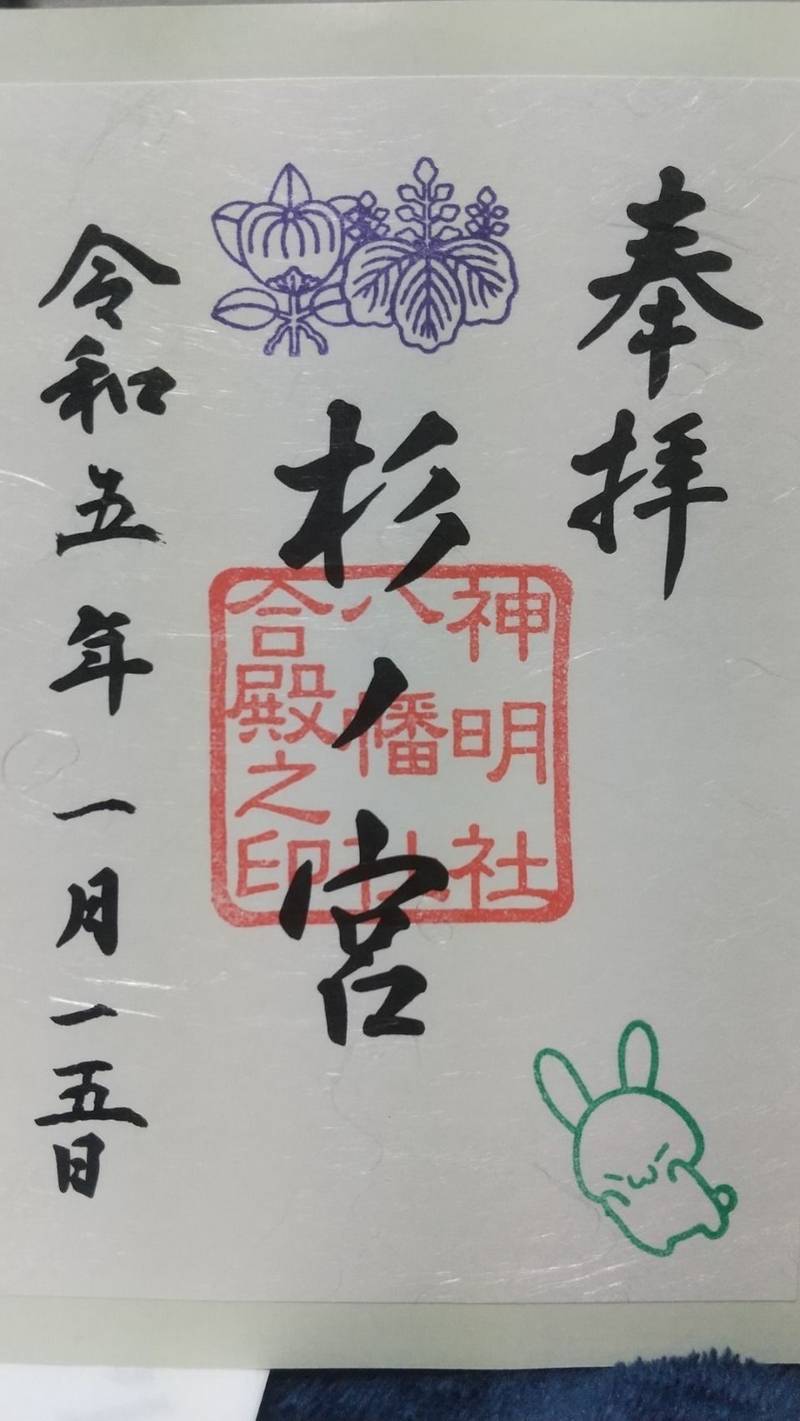 奉拝
杉ノ宮
神明社
八幡社
合殿之印
令和五年一月一五日